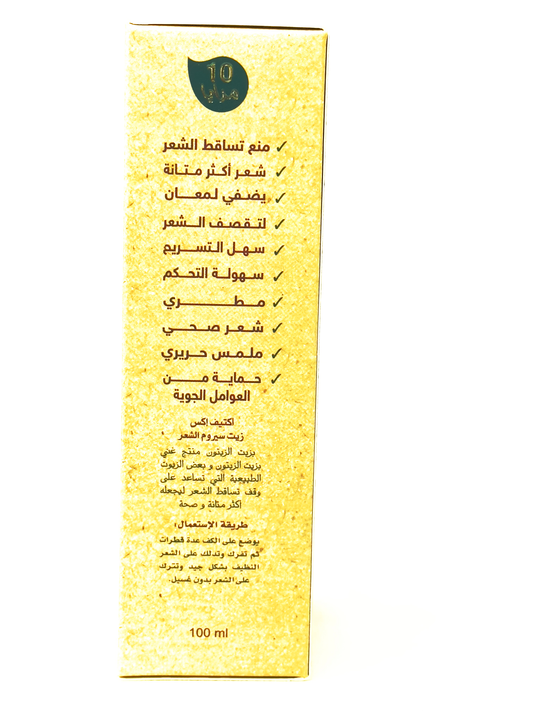 10
مزايا
✓ منع تساقط الشعر
✓ شعر أكثر متانة
✓ يضفي لمعان
✓ لتقصف الشعر
✓ سهل التسريح
✓ سهولة التحكم
✓ مطري
✓ شعر صحي
✓ ملمس حريري
✓ حماية من
العوامل الجوية
اكتيف إكس
زيت سيروم الشعر
بزيت الزيتون منتج غني
بزيت الزيتون و بعض الزيوت
الطبيعية التي تساعد على
وقف تساقط الشعر ليجعله
أكثر متانة و صحة
طريقة الإستعمال:
يوضع على الكف عدة قطرات
ثم تفرك وتدلك على الشعر
النظيف بشكل جيد وتترك
على الشعر بدون غسيل.
100 ml